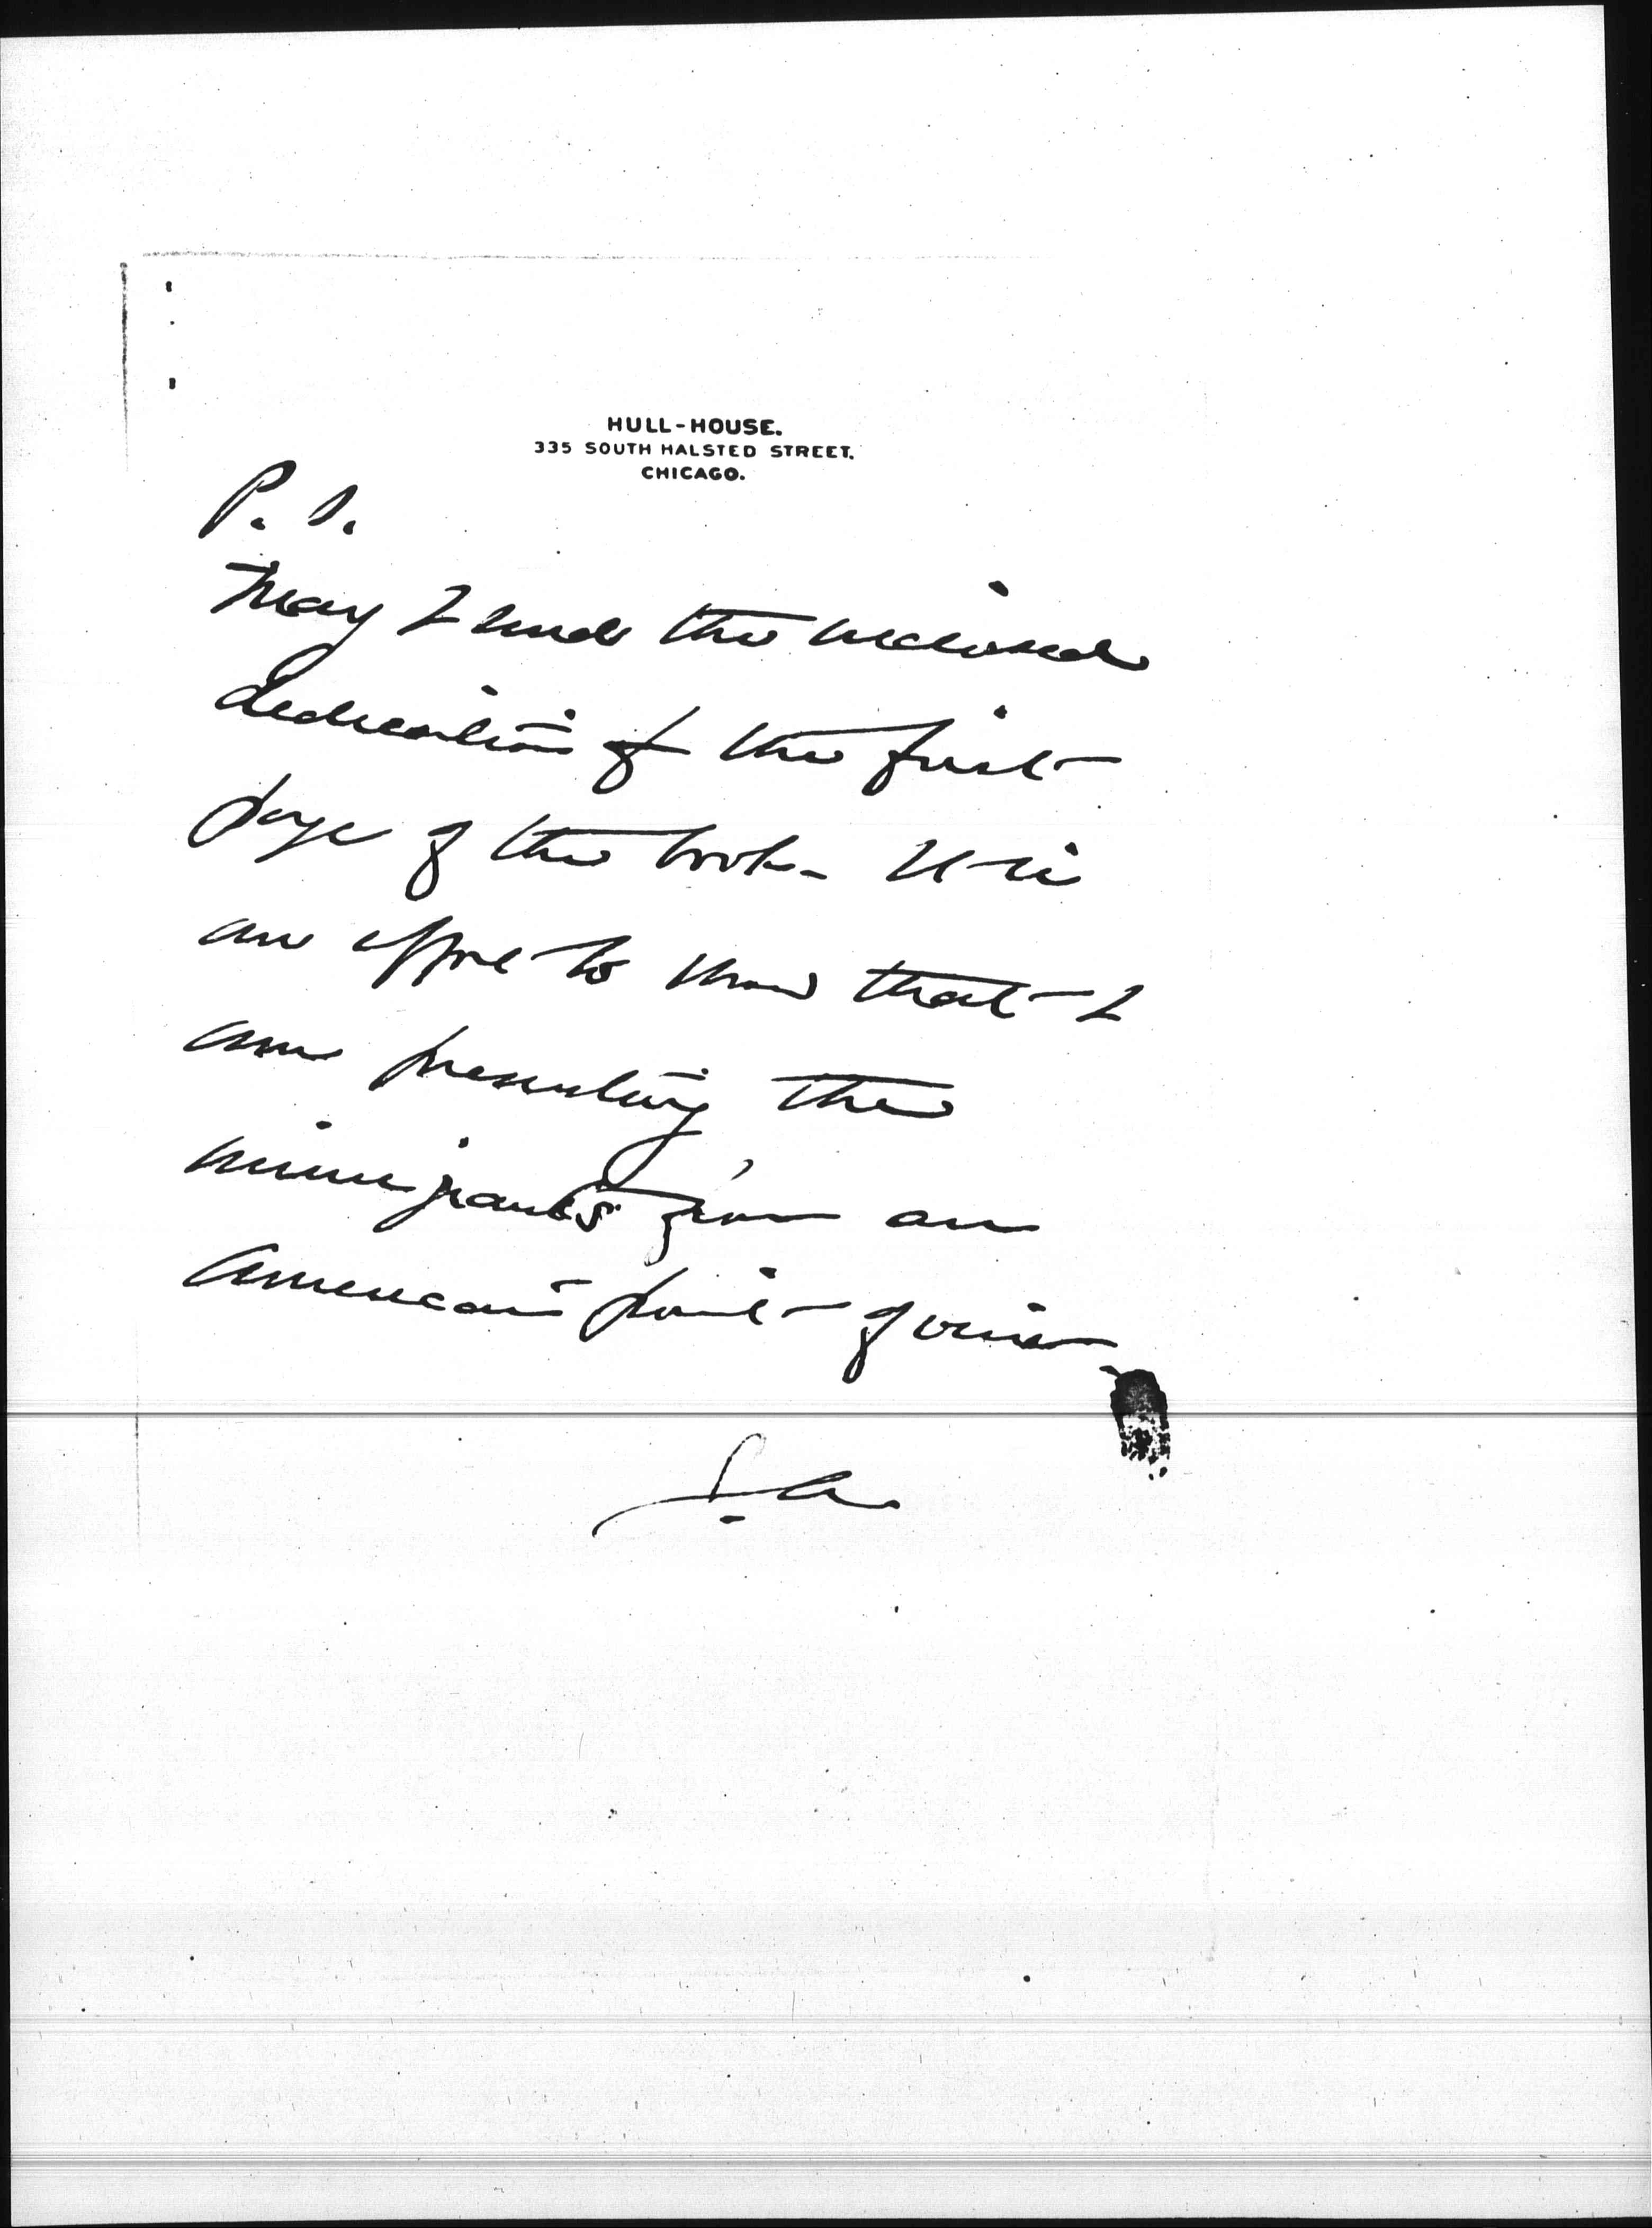 HULL-HOUSE.
335 SOUTH HALSTED STREET.
CHICAGO.
P.S.
May I send the inclosed
dedication of the first
page of the book - It is
an effort to show that I
am presenting the
immigrants from an
American point of view
J.A.